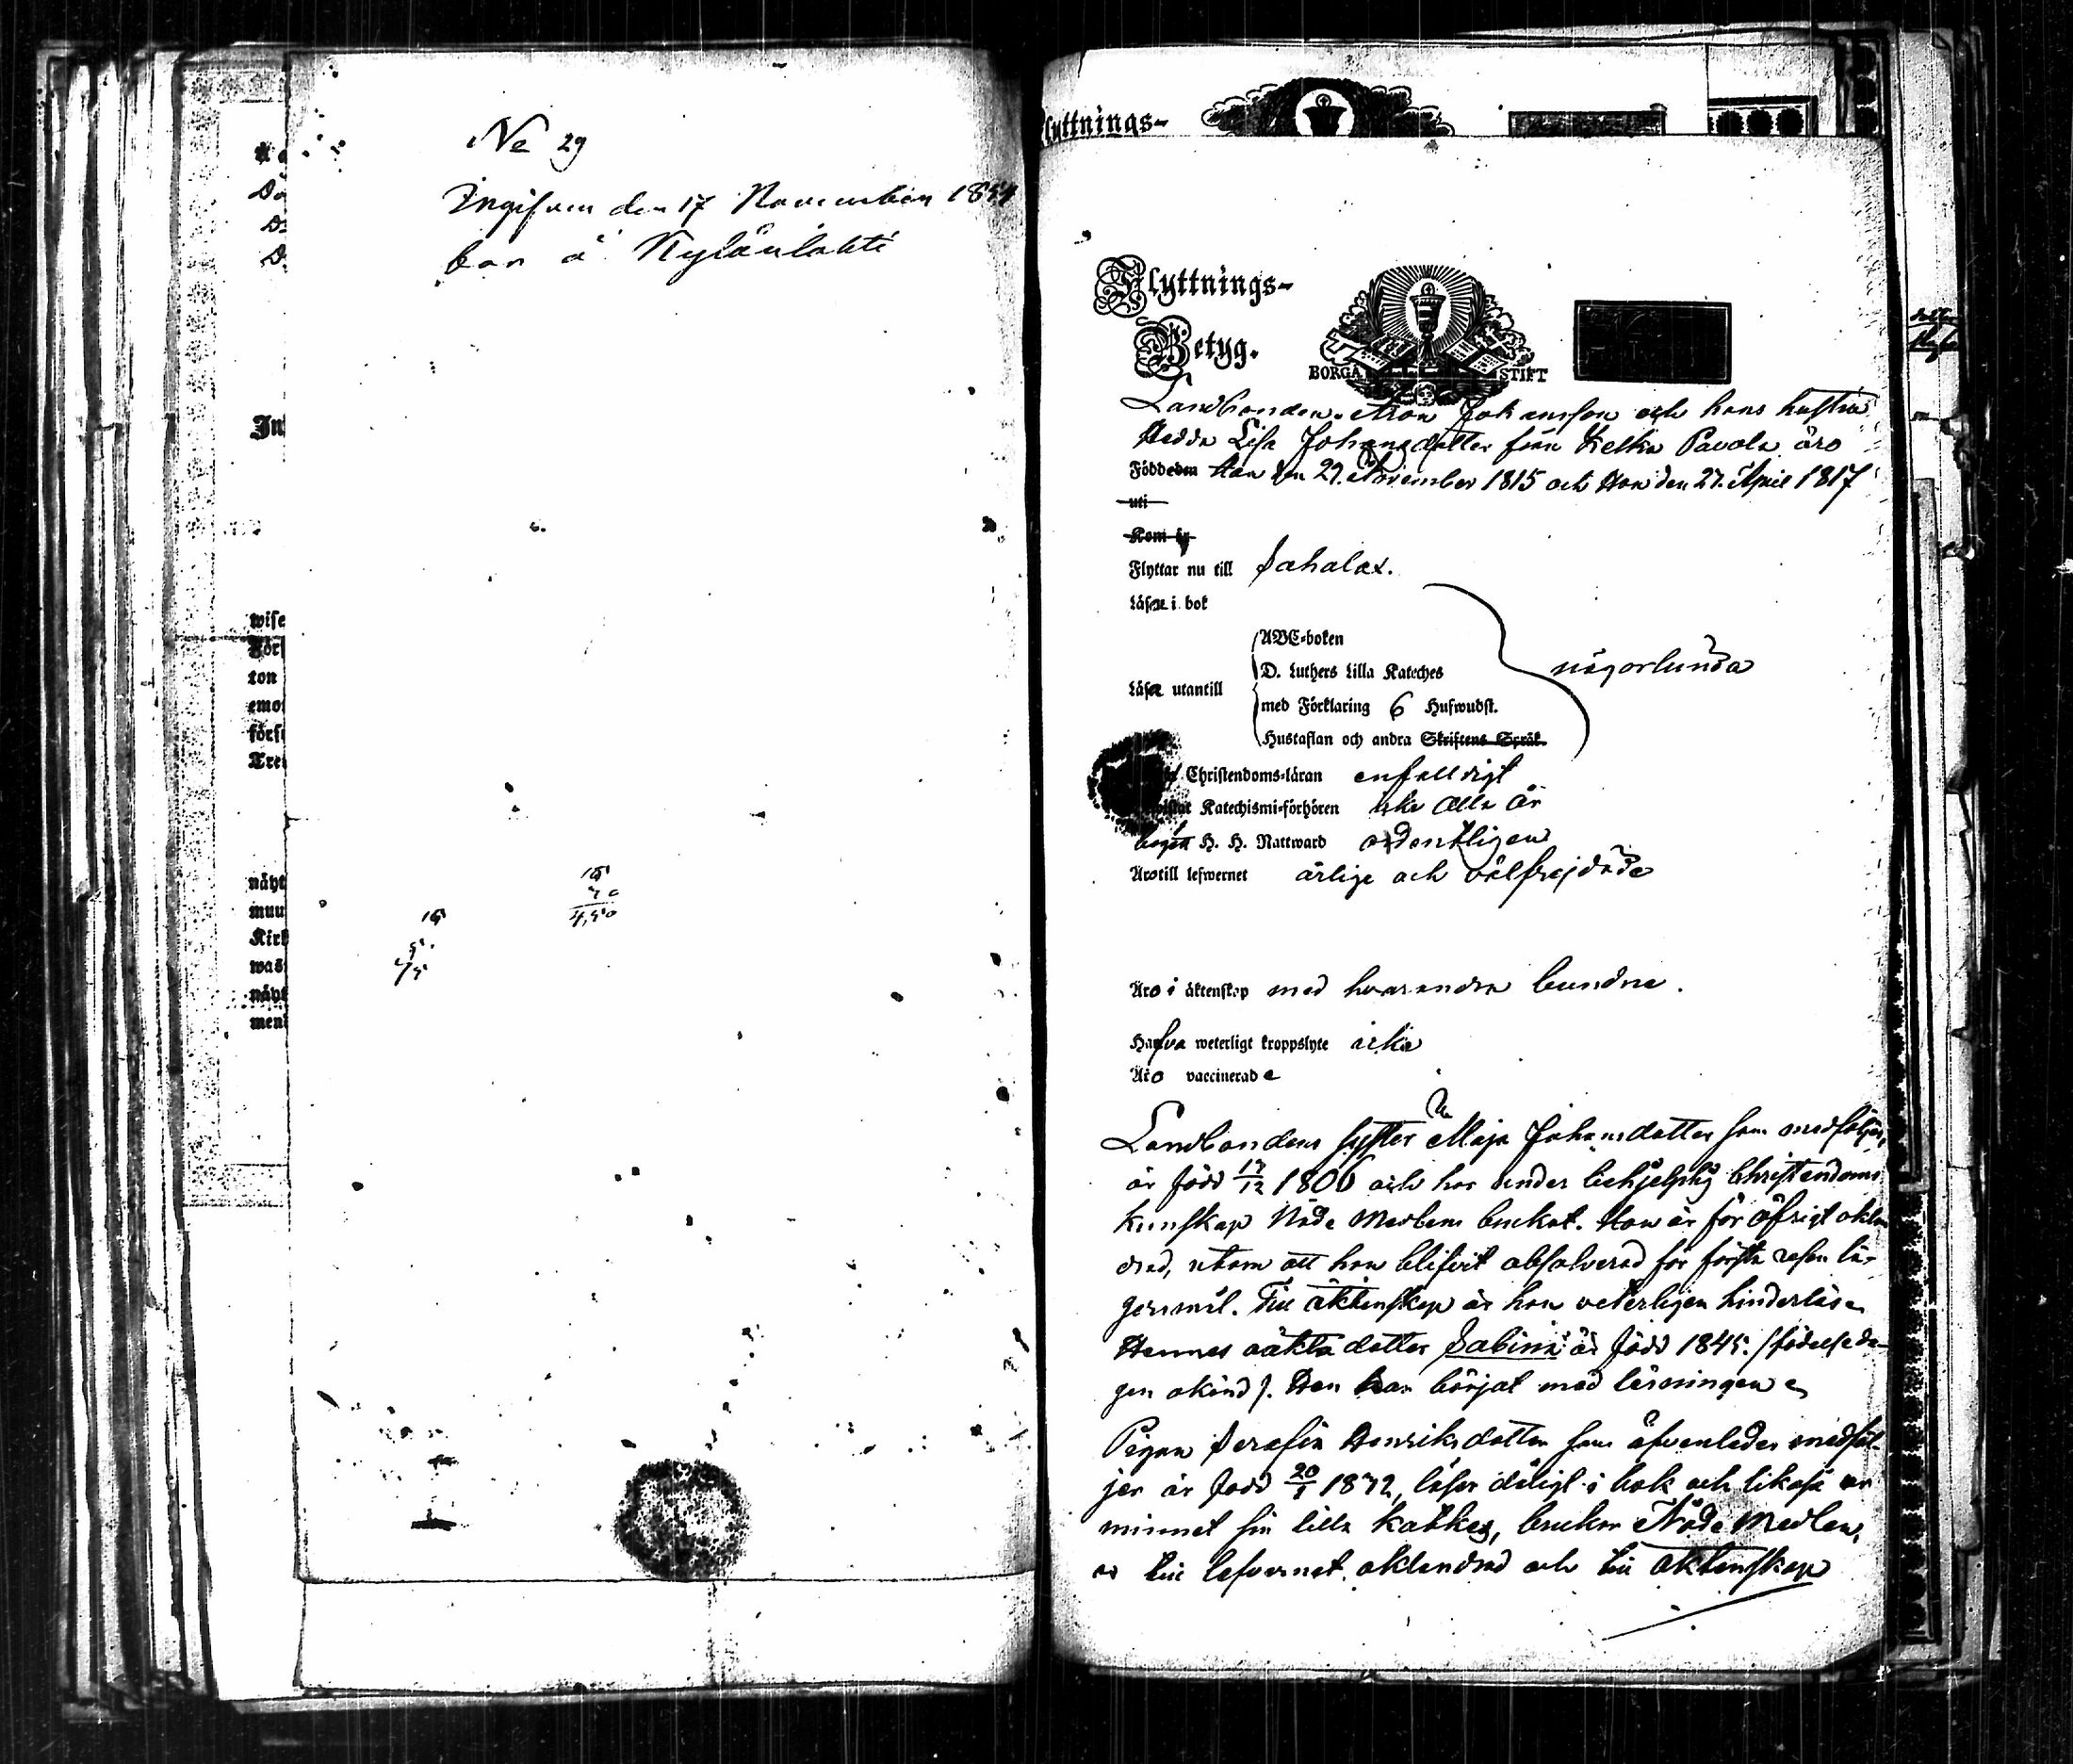 No 29
Ingifven den 17 November 1854
bor å Kyläulahti
15
5
75
4,50
Flyttnings-
Flyttnings-
Betyg.
BORGÅ STIFT
Landbonden Aron Johansson och hans hustru
Hedda Lisa Johansdotter från Kelka Pavola äro
Födde den Han den 29. November 1815 och Hon den 27. April 1817
uti
Kom
Flyttar nu till Sahalax.
Läsa i bok
ABC-boken
D. Luthers Lilla Kateches
någorlunda
Läsa utantill
med Förklaring 6 Hufwudst.
Hustaflan och andra Skriftens Språk.
Christendoms-läran enfalldigt
Katechismi-förhören icke alla år
begå H. H. Nattward ordentligen
Äro till lefwernet ärlige och välfrejdade
Äro i äktenskap med hvarandra bundne.
Hafva weterligt kroppslyte icke
Äro vaccinerade
Landbondens syster Maja Johansdotter som medföljer,
är född 17/12 1806 och har under behjelplig Christendoms
kunskap Nåde Medlens bruket. Hon är för öfrigt oklan
drad, utom att hon blifvit absolverad för första resan lä-
gersmål. Till äktenskap är hon veterligen hinderlös
Hennes oäkta dotter Sabina är född 1845. (födelseda-
gen okänd). Hon har börjat med läsningen
Pigan Serafia Henriksdotter som äfvenledes medföl-
jer är född 1832, läser dåligt i bok och likaså ur
minnet sin lilla Katkes, brukar Nåde Medlen,
är till lefvernet oklandrad och till äktenskap